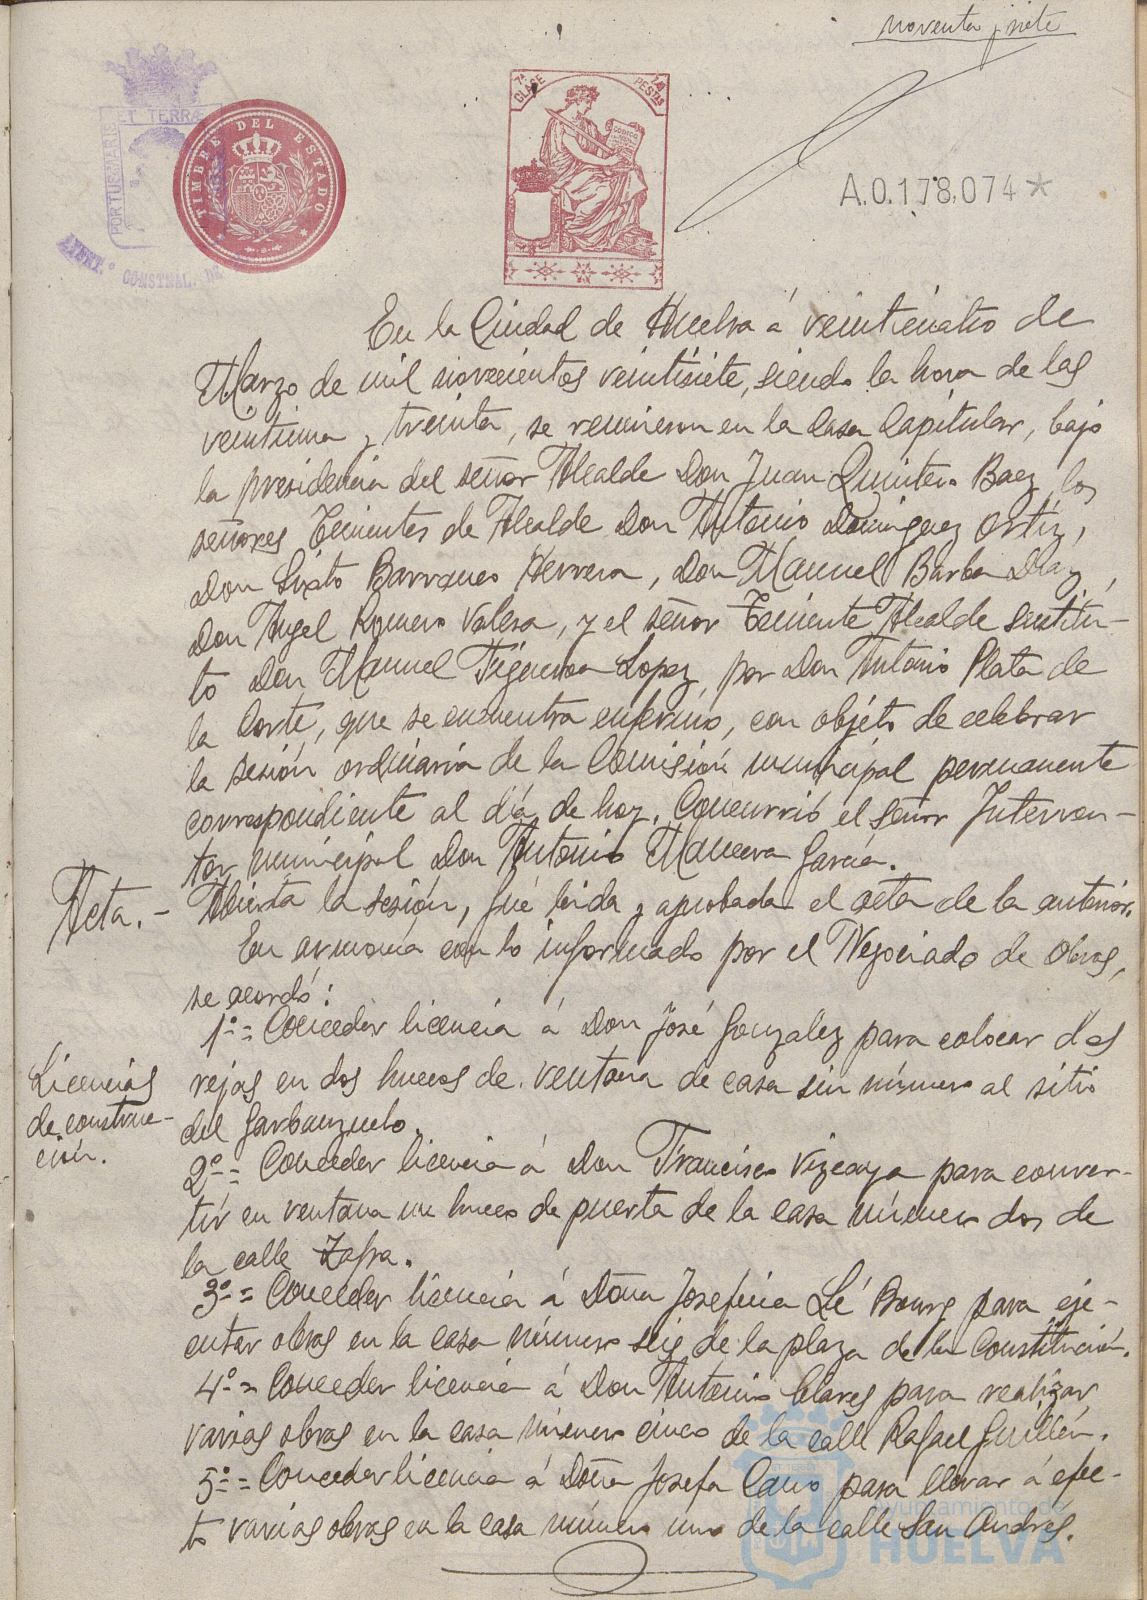 noventa y siete
7ª CLASE
2,40 PESTAS
CODIGO
TIMBRE DEL ESTADO
ET TERRÆ
PORTUS MARIS
AYUNT.º CONSTNAL. DE
A.0.178.074*
En la Ciudad de Huelva á veinticuatro de
Marzo de mil novecientos veintisiete, siendo la hora de las
veintiuna y treinta, se reunieron en la Casa Capitular, bajo
la presidencia del señor Alcalde Don Juan Quintero Baez los
señores Tenientes de Alcalde Don Antonio Dominguez Ortiz,
Don Sixto Barranco Herrera, Don Manuel Barba Diaz,
Don Angel Romero Valera, y el señor Teniente Alcalde sustitu-
to Don Manuel Figueroa Lopez, por Don Antonio Plata de
la Corte, que se encuentra enfermo, con objéto de celebrar
la sesión ordinaria de la Comisión municipal permanente
correspondiente al día de hoy. Concurrió el señor Interven-
tor municipal Don Antonio Mancera García.
Acta.- Abierta la sesión, fué leida y aprobada el acta de la anterior.
En armonía con lo informado por el Negociado de Obras,
se acordó:
1º = Conceder licencia á Don José Gonzalez para colocar dos
Licencias
de construc-
ción.
rejas en dos huecos de ventana de casa sin número al sitio
del Garbanzuelo.
2º = Conceder licencia á Don Francisco Vizcaya para conver-
tir en ventana un hueco de puerta de la casa número dos de
la calle Zafra.
3º = Conceder licencia á Doña Josefina Lé Bourg para eje-
cutar obras en la casa número seis de la plaza de la Constitución.
4º = Conceder licencia á Don Antonio Clares para realizar
varias obras en la casa número cinco de la calle Rafael Guillén.
5º = Conceder licencia á Doña Josefa Cano para llevar á efec-
to varias obras en la casa número uno de la calle San Andrés.
Ayuntamiento de
HUELVA